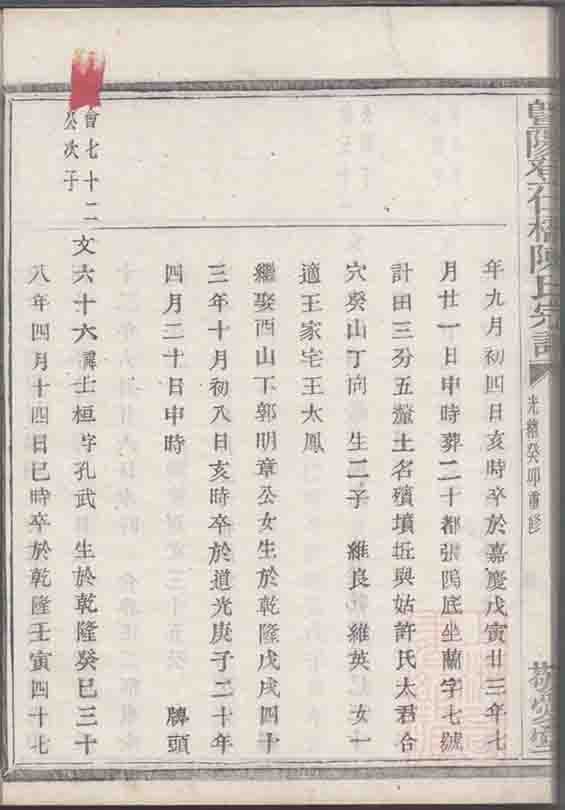 暨陽孝仁橋陳氏宗譜
光緒癸卯重修
年九月初四日亥時卒於嘉慶戊寅廿三年七
月廿一日申時葬二十都張隖底坐蘭字七號
計田三分五釐土名殯墳坵與姑許氏太君合
穴癸山丁向 生二子 維良維英 女一
適王家宅王太鳳
繼娶西山下郭明章公女生於乾隆戊戌四十
三年十月初八日亥時卒於道光庚子二十年
四月二十日申時 牌頭
會七十二
公次子
文六十六諱士桓字孔武 生於乾隆癸巳三十
八年四月十四日巳時卒於乾隆壬寅四十七